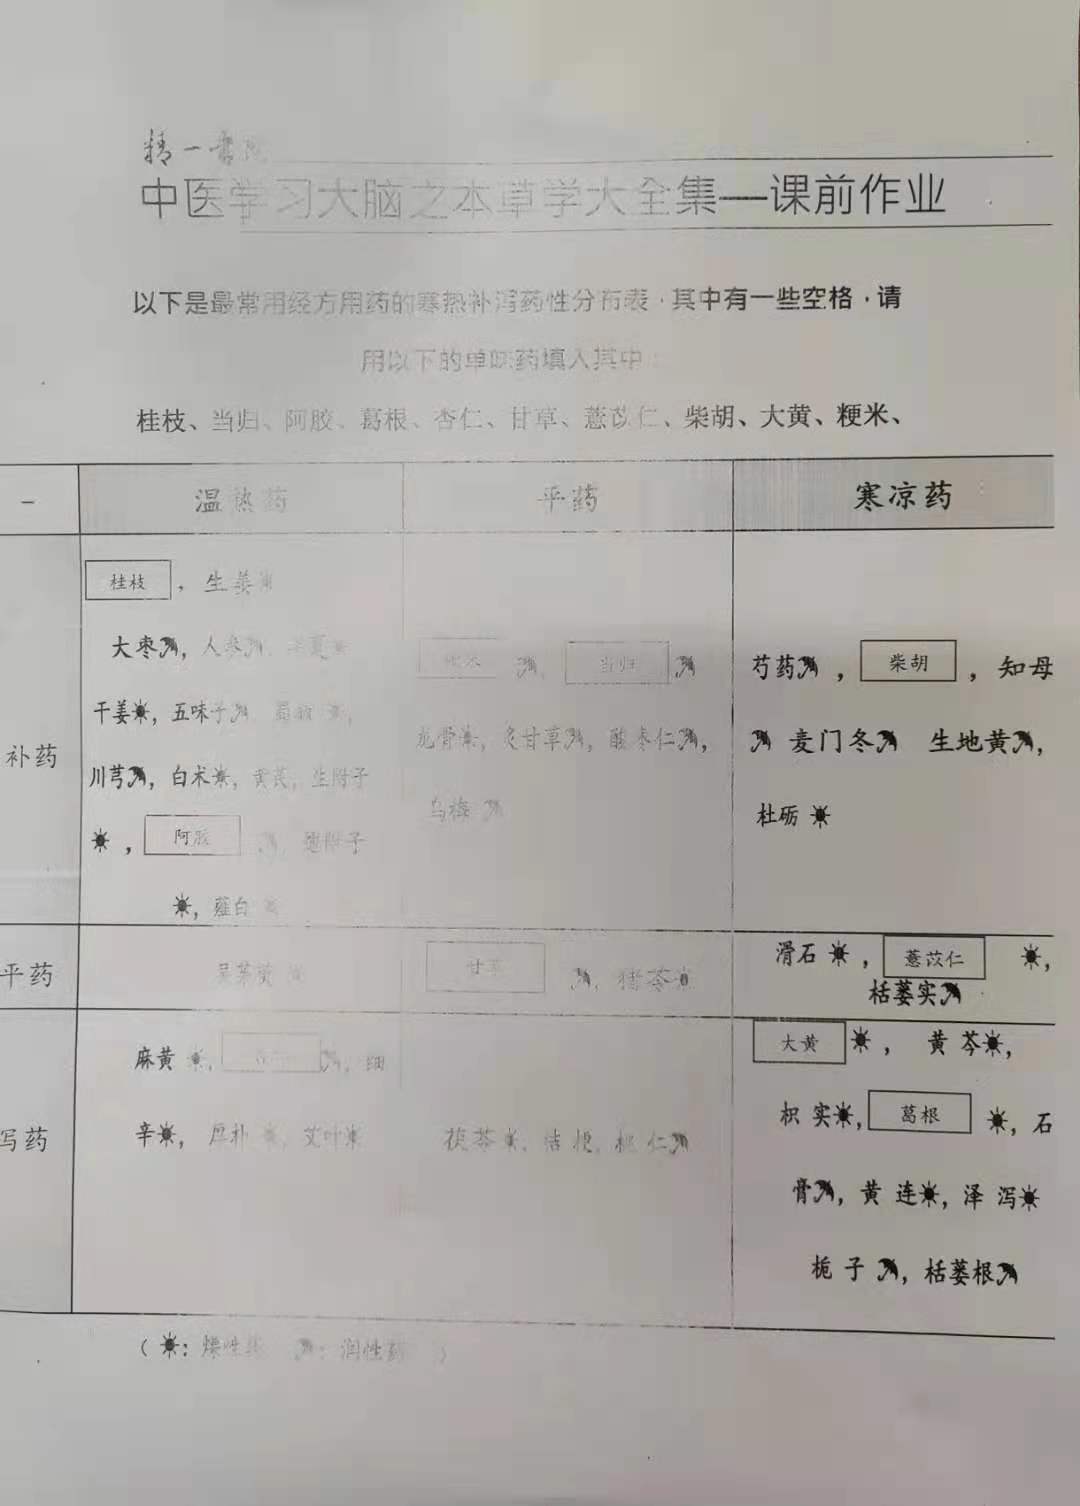 精一書院
中医学习大脑之本草学大全集—课前作业
以下是最常用经方用药的寒热补泻药性分布表·其中有一些空格·请
用以下的单味药填入其中:
桂枝、当归、阿胶、葛根、杏仁、甘草、薏苡仁、柴胡、大黄、粳米、
— 温热药 平药 寒凉药
补药
桂枝，生姜
大枣，人参，半夏
干姜，五味子，蜀椒，
川芎，白术，黄芪，生附子
，阿胶，炮附子
，薤白
粳米，当归，
龙骨，炙甘草，酸枣仁，
乌梅
芍药，柴胡，知母
麦门冬 生地黄，
杜砺
平药
吴茱萸
甘草，猪苓
滑石，薏苡仁，
栝蒌实
写药
麻黄，杏仁，细
辛，厚朴，艾叶
茯苓，桔梗，桃仁
大黄，黄芩，
枳实，葛根，石
膏，黄连，泽泻
栀子，栝蒌根
（：燥性药 ：润性药）